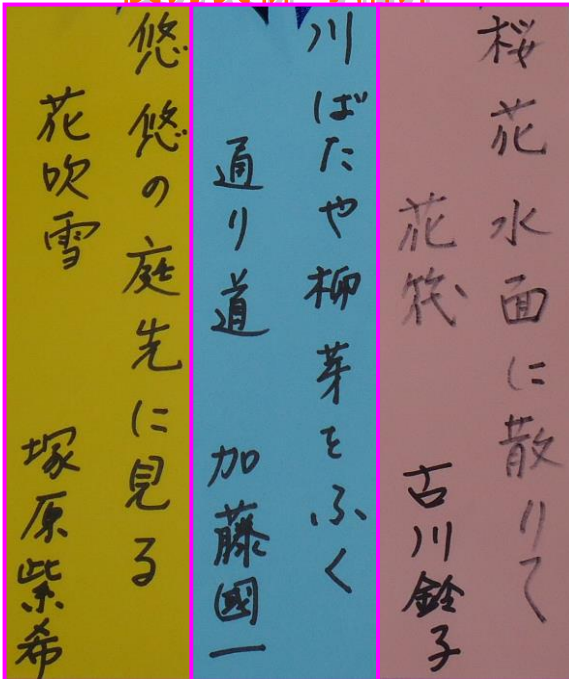 桜花水面に散りて
花筏
古川銓子
川ばたや柳芽をふく
通り道
加藤國一
悠悠の庭先に見る
花吹雪
塚原紫希